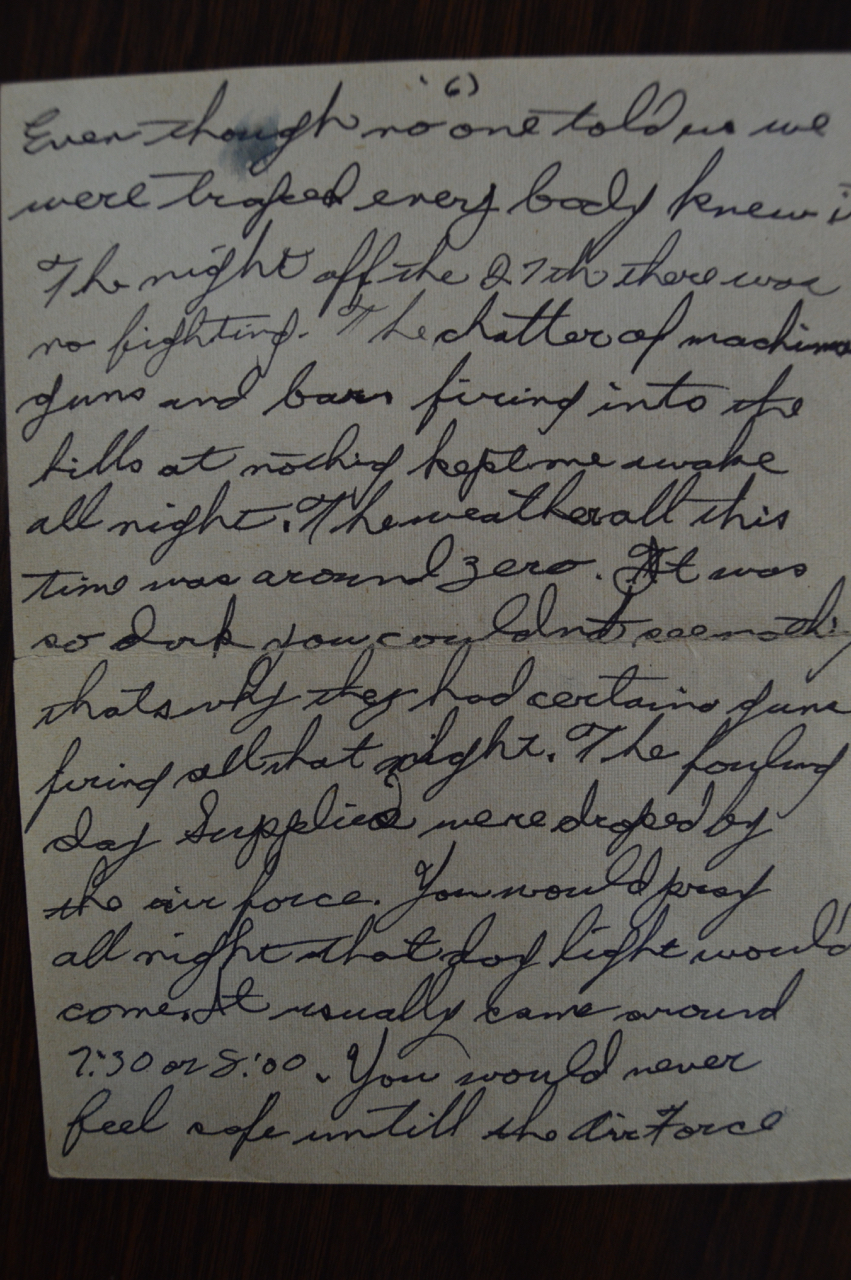 6)
Even though no one told us we
were traped every body knew i
The night off the 27th there was
no fighting. The chatter of machine
guns and bars firing into the
hills at nothing kept me awake
all night. The weather all this
time was around zero. It was
so dark you couldnt see nothi
thats why they had certain guns
firing all that night. The fowling
day Supplies were droped by
the air force. You would pray
all night that day light would
come. It usually came around
7:30 or 8:00. You would never
feel safe untill the Air Force